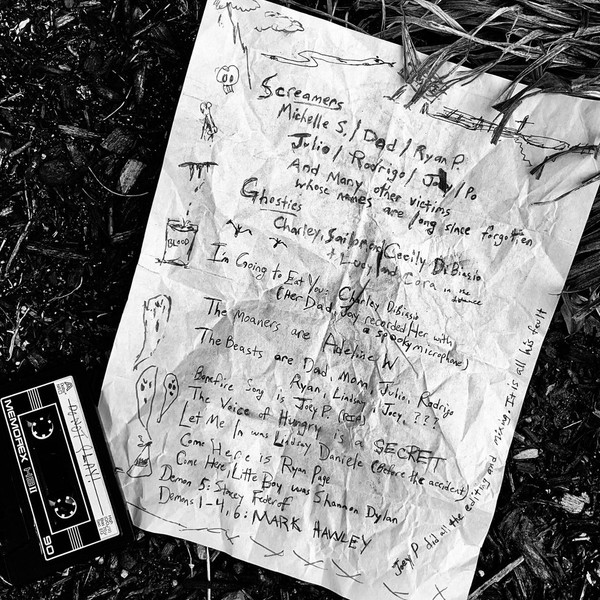 Screamers
Michelle S. / Dad / Ryan P.
Julio / Rodrigo / Joey / Po
And Many other victims
whose names are long since forgotten
Ghosties
Charley, Sailomon, Cecily DiBiasio
+ Lucy and Cora in the distance
I'm Going to Eat You: Charley DiBiasio
(Her Dad, Jay recorded Her with
a spooky microphone)
The Moaners are Adeline W
The Beasts are Dad, Mom, Julio, Rodrigo
Ryan, Lindsay, Joey, ???
Bonefire Song is Joey P. (RIP)
The Voice of Hungry is a SECRET
Let Me In was Lindsay Daniele (Before the accident)
Come Here is Ryan Page
Come Here Little Boy was Shannon Dylan
Demon 5: Stacey Federoff
Demons 1-4, 6: MARK HAWLEY
Joey P. did all the editing and mixing. It is all his fault
BLOOD
A
MEMOREX
90